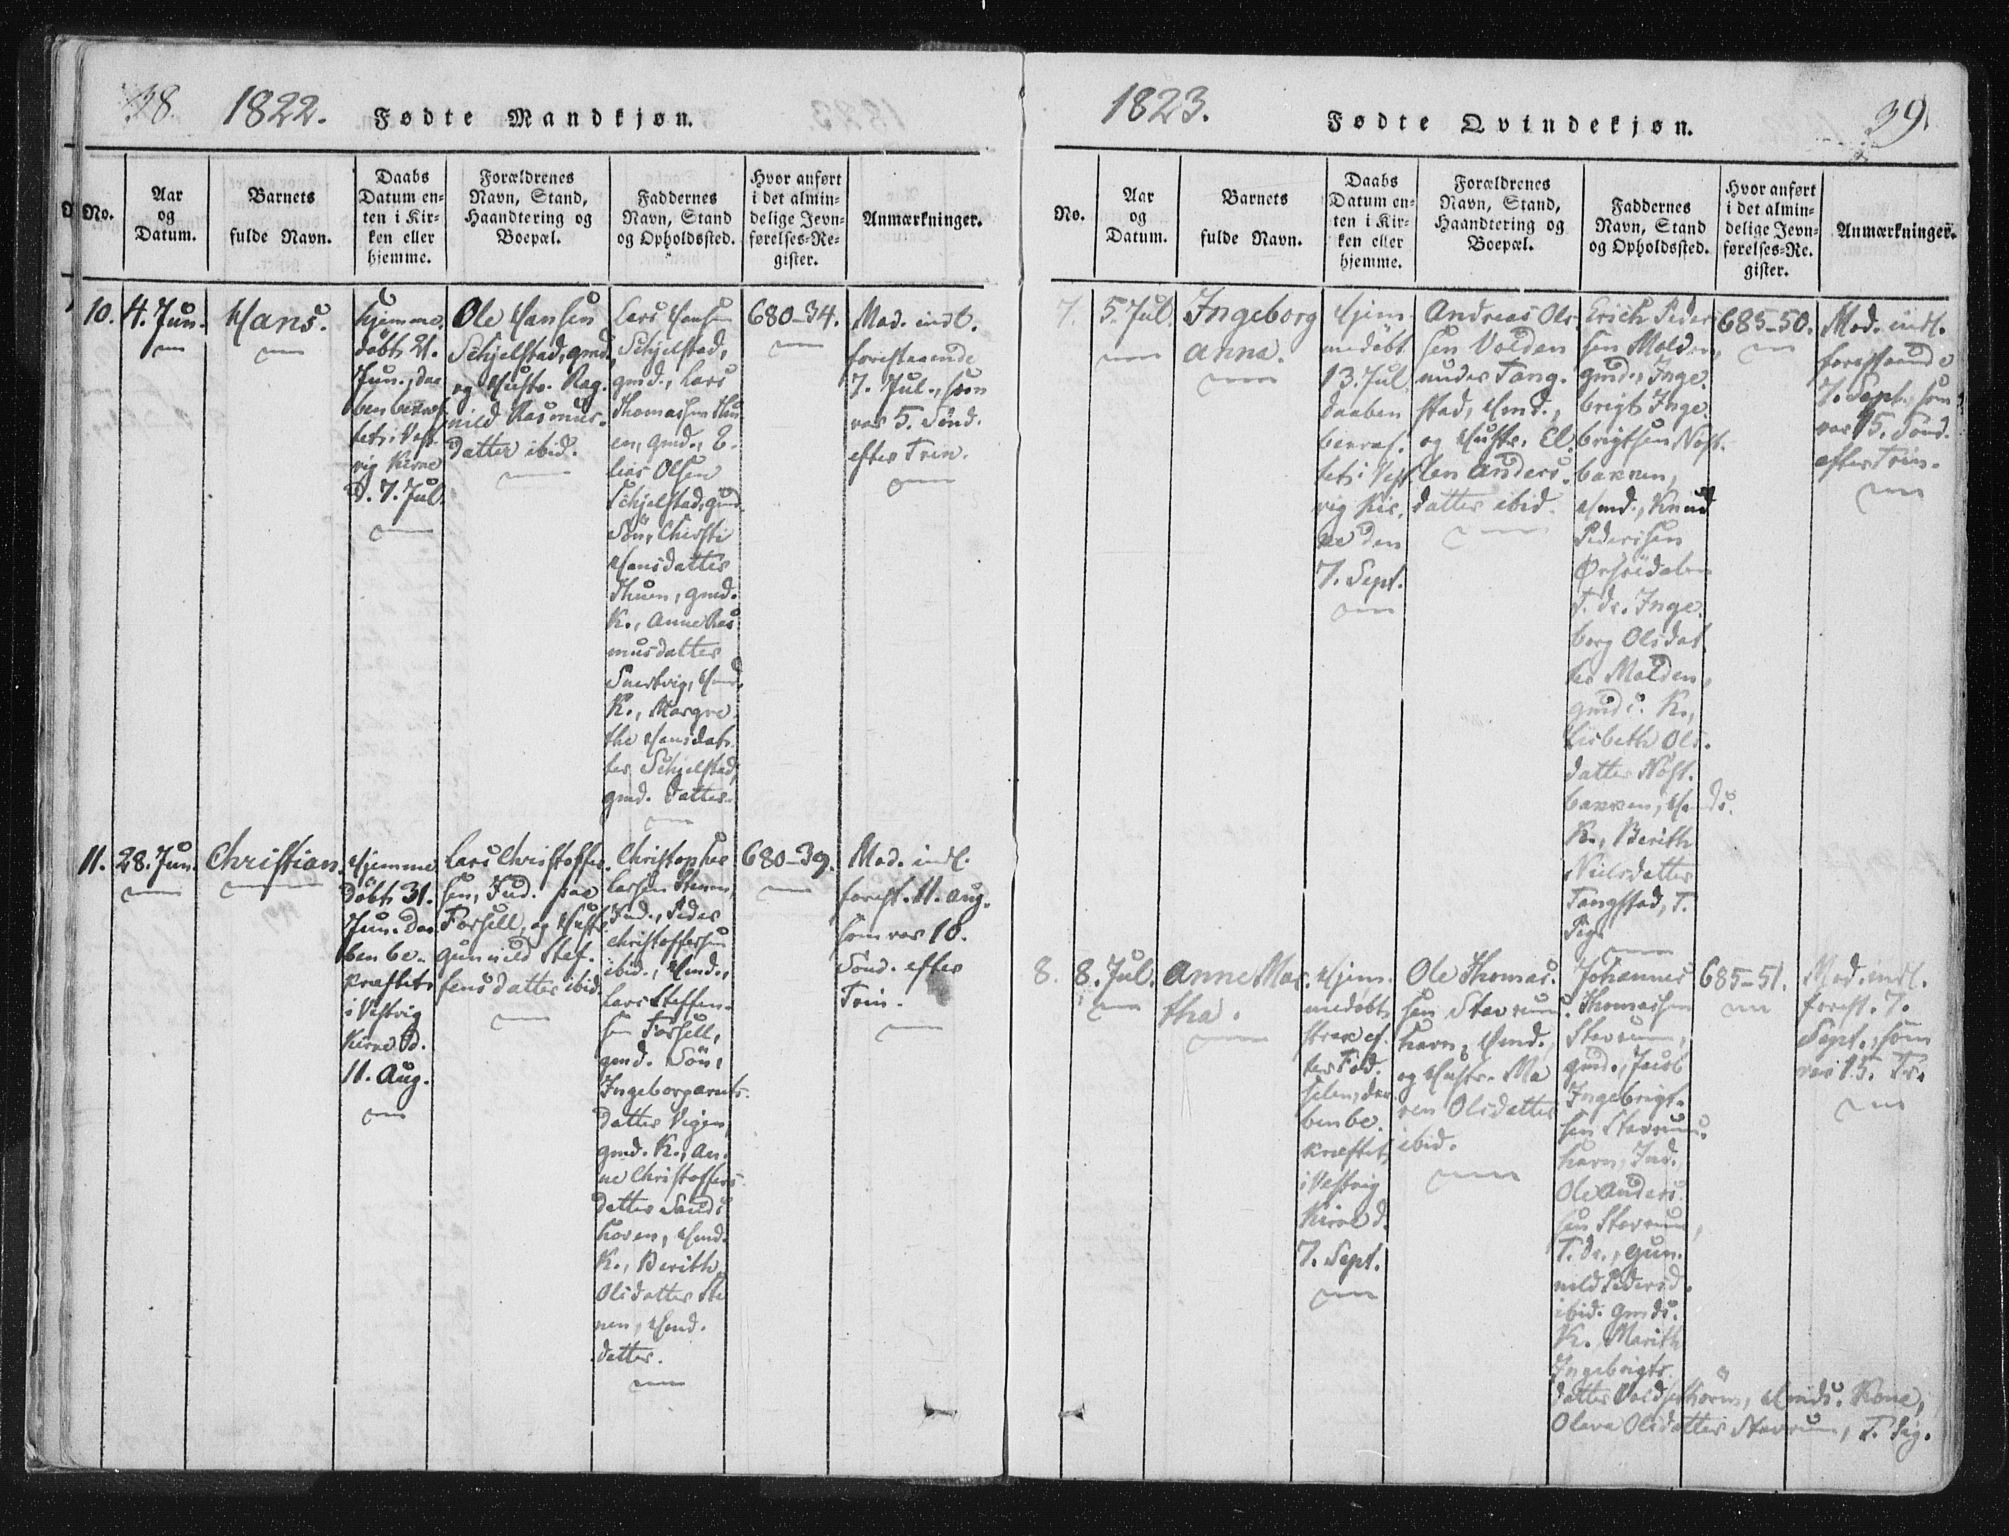 38.
1822.
Fødte Mandkjøn.
No.
Aar
og
Datum.
Barnets
fulde Navn.
Daabs
Datum en-
ten i Kir-
ken eller
hjemme.
Forældrenes
Navn, Stand,
Haandtering og
Boepæl.
Faddernes
Navn, Stand
og Opholdssted.
Hvor anført
i det almin-
delige Jevn-
førelses-Re-
gister.
Anmærkninger.
10.
4. Jun.
Hans.
Hjemme
döbt 21.
Jun., daa
ben bekraf
tet i Vest
vig Kirke
d. 7. Jul.
Ole Hansen
Schjelstad, gmd.,
og Hustr. Rag
nild Rasmus-
datter ibid.
Lars Hansen
Schjelstad,
gmd., Lars
Thomassen Thu
en, gmd., E-
lias Olsen
Schjelstad, gmd.
Sön, Chirsti
Hansdatter
Thuen, gmd.
K., Anne Ras
musdatter
Hmd.
K., Margre
the Hansdat
ter Schjelstad,
gmd. datter.
680-34.
Mod. indl.
forestaaende
7. Jul., som
var 5. Sönd.
efter Trin.
11.
28. Jun.
Christian.
Hjemme
döbt 31.
Jun. daa
ben be-
kræftet
i Vestvig
Kirke d.
11. Aug.
Lars Christoffer
sen, Ind. paa
Forsell, og Hustr.
Gunnild Stef-
fensdatter ibid.
Christopher
Larsen
Ind., Peder
Christoffersen
ibid., Hmd.,
Lars Steffen-
sen Forsell,
gmd. Sön,
Ingeborg Arnts
datter Vigen,
gmd. K., An-
ne Christoffers
datter Sands
hoven, Hmd.
K., Berith
Olsdatter Ste
nen, Hmd.
datter.
680-39.
Mod. indl.
forest. 11. Aug.
som var 10.
Sönd. efter
Trin.
1823.
Fødte Qvindekjøn.
39.
No.
Aar
og
Datum.
Barnets
fulde Navn.
Daabs
Datum en-
ten i Kir-
ken eller
hjemme.
Forældrenes
Navn, Stand,
Haandtering og
Boepæl.
Faddernes
Navn, Stand
og Opholdssted.
Hvor anført
i det almin-
delige Jevn-
førelses-Re-
gister.
Anmærkninger.
7.
5. Jul.
Ingeborg
Anna.
Hjem-
medöbt
13. Jul.
daaben
bekraf-
tet i Vest
vig Kir-
ke den
7. Sept.
Andreas Ols
sen Volden
under Tang-
stad, Hmd.,
og Hustr. El
len Anders-
datter ibid.
Erich Peder
sen Molden,
gmd., Inge
brigt Inge
brigtsen Nöst
bakken,
Hmd., Knud
Pedersen
T. dr. Inge
borg Olsdat
ter Molden,
gmds. K.,
Lisbeth Ols-
datter Nöst-
bakken, Hmds.
K., Berith
Nielsdatter
Tangstad, T.
Pige
685-50.
Mod. indl.
forestaaende
7. Sept. som
var 15. Sönd.
efter Trin.
8.
8. Jul.
Anne Mar
tha.
Hjem-
medöbt
strax ef-
ter Föd-
selen, daa
ben be-
kræftet
i Vestvig
Kirke d.
7. Sept.
Ole Thomas-
sen Stavrum
havn, Hmd.,
og Hustr. Ma
ren Olsdatter
ibid.
Johannes
Thomassen
Stavrum,
gmd., Jacob
Ingebrigt-
sen Stavrum-
havn, Ind.
Ole Anders-
sen Stavrum,
T. dr., Gun-
nild Pedersd.
ibid. gmds.
K. Marith
Ingebrigts
datter Hmds. Kone,
Olava Olsdatter Stavrum, T. Pig.
685-51.
Mod. indl.
forest. 7.
Sept., som
var 15. Tr.